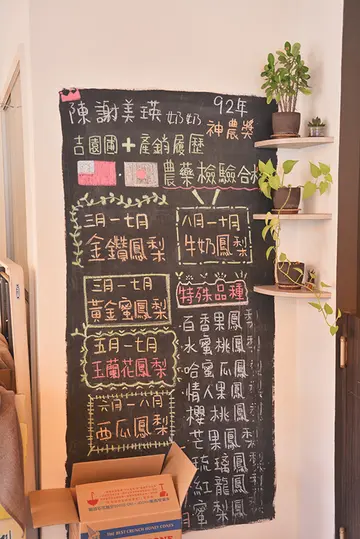 陳謝美瑛奶奶 92年
神農獎
吉園圃+產銷履歷
農藥檢驗合格
三月-七月
金鑽鳳梨
八月-十月
牛奶鳳梨
三月-七月
黃金蜜鳳梨
五月-七月
玉蘭花鳳梨
六月-八月
西瓜鳳梨
特殊品種
百香果鳳
水蜜桃鳳
哈蜜瓜鳳
情人果鳳
櫻桃鳳
芒果鳳
琉璃鳳
紅龍鳳
蜜鳳梨